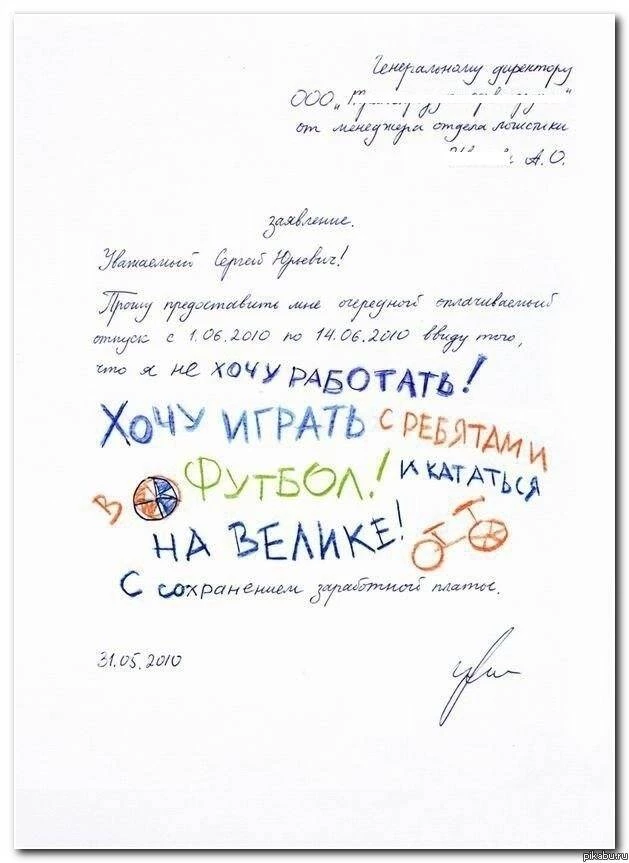 Генеральному директору
ООО „
от менеджера отдела логистики
А.О.
заявление.
Уважаемый Сергей Юрьевич!
Прошу предоставить мне очередной оплачиваемый
отпуск с 1.06.2010 по 14.06.2010 ввиду того,
что я не хочу РАБОТАТЬ!
ХОЧУ ИГРАТЬ С РЕБЯТАМИ
В ФУТБОЛ! И КАТАТЬСЯ
НА ВЕЛИКЕ!
С сохранением заработной платы.
31.05.2010
pikabu.ru